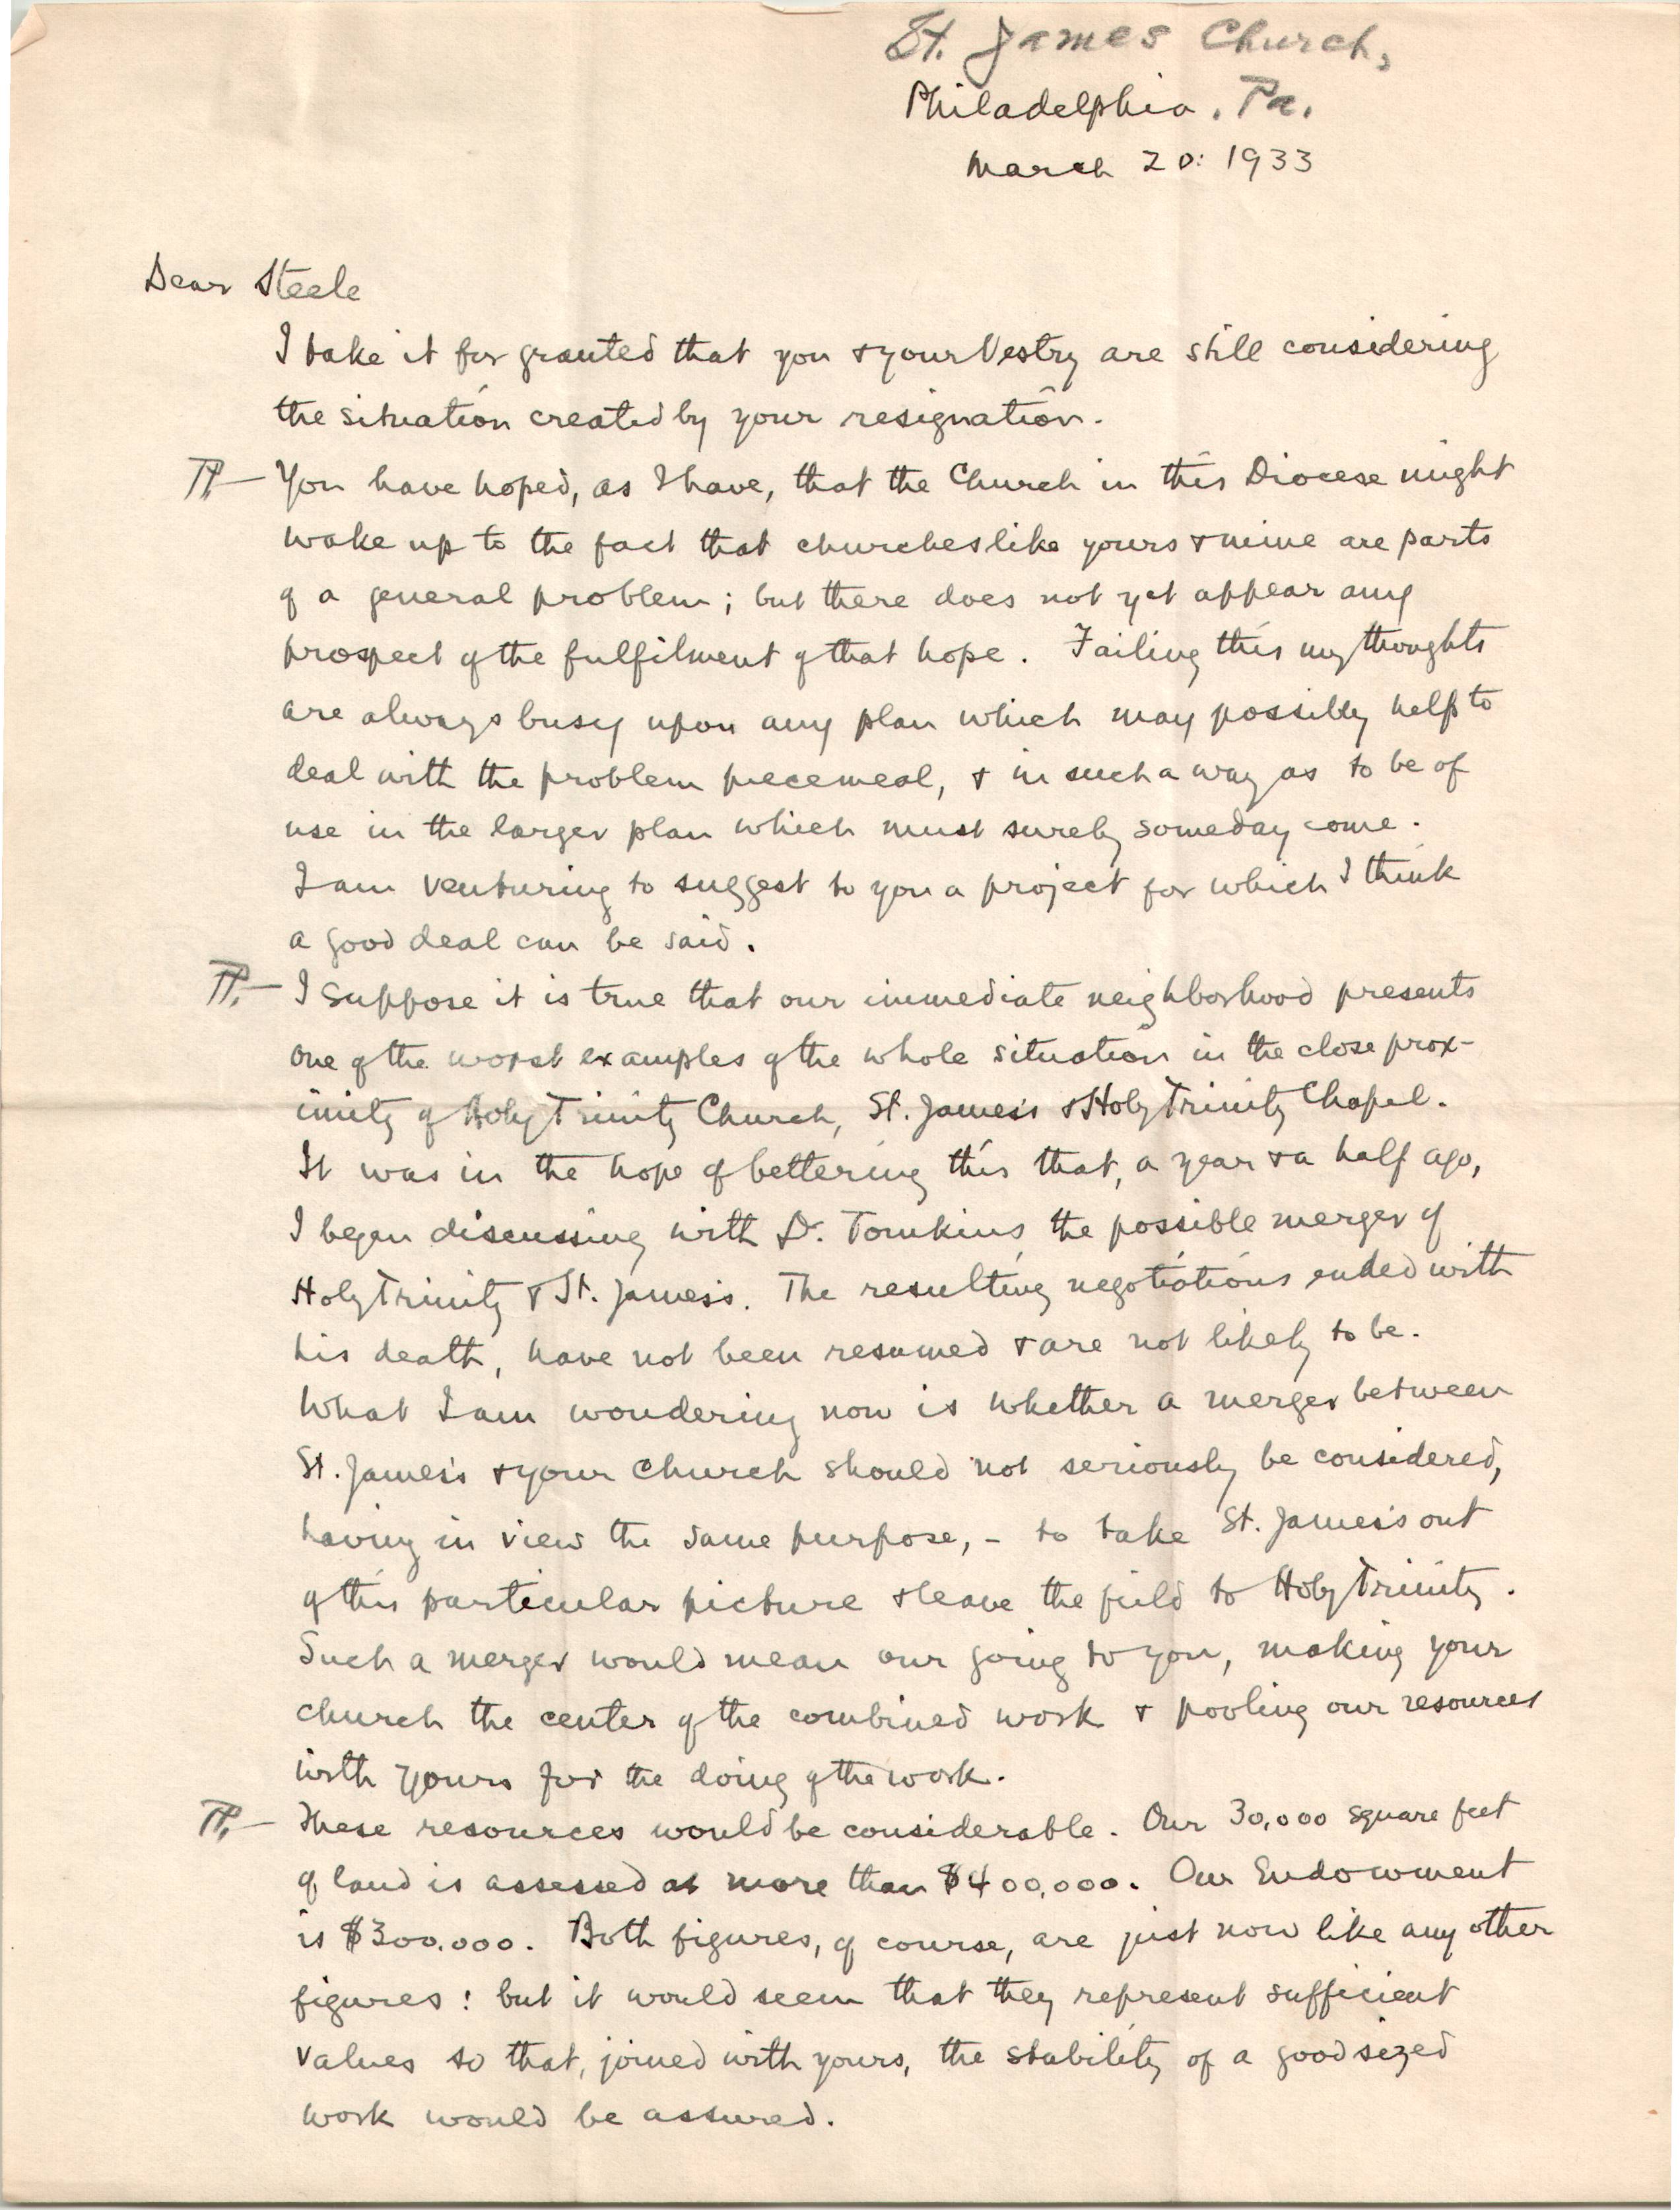 St. James Church,
Philadelphia, Pa.
March 20: 1933
Dear Steele
I take it for granted that you & your Vestry are still considering
the situation created by your resignation.
¶— You have hoped, as I have, that the Church in this Diocese might
wake up to the fact that churches like yours & mine are parts
of a general problem; but there does not yet appear any
prospect of the fulfilment of that hope. Failing this my thoughts
are always busy upon any plan which may possibly help to
deal with the problem piecemeal, & in such a way as to be of
use in the larger plan which must surely someday come.
I am venturing to suggest to you a project for which I think
a good deal can be said.
¶— I suppose it is true that our immediate neighborhood presents
one of the worst examples of the whole situation in the close prox-
imity of Holy Trinity Church, St. James's & Holy Trinity Chapel.
It was in the hope of bettering this that, a year & a half ago,
I began discussing with Dr. Tomkins the possible merger of
Holy Trinity & St. James's. The resulting negotiations ended with
his death, have not been resumed & are not likely to be.
What I am wondering now is whether a merger between
St. James's & your Church should not seriously be considered,
having in view the same purpose, - to take St. James's out
of this particular picture & leave the field to Holy Trinity.
Such a merger would mean our going to you, making your
church the center of the combined work & pooling our resources
with yours for the doing of the work.
¶— These resources would be considerable. Our 30,000 square feet
of land is assessed at more than $400,000. Our Endowment
is $300,000. Both figures, of course, are just now like any other
figures: but it would seem that they represent sufficient
values so that, joined with yours, the stability of a good sized
work would be assured.